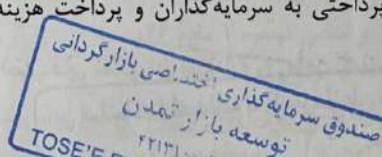 پرداختی به سرمایه‌گذاران و پرداخت هزینه
صندوق سرمایه‌گذاری اختصاصی بازارگردانی
توسعه بازار تمدن
TOSE'E